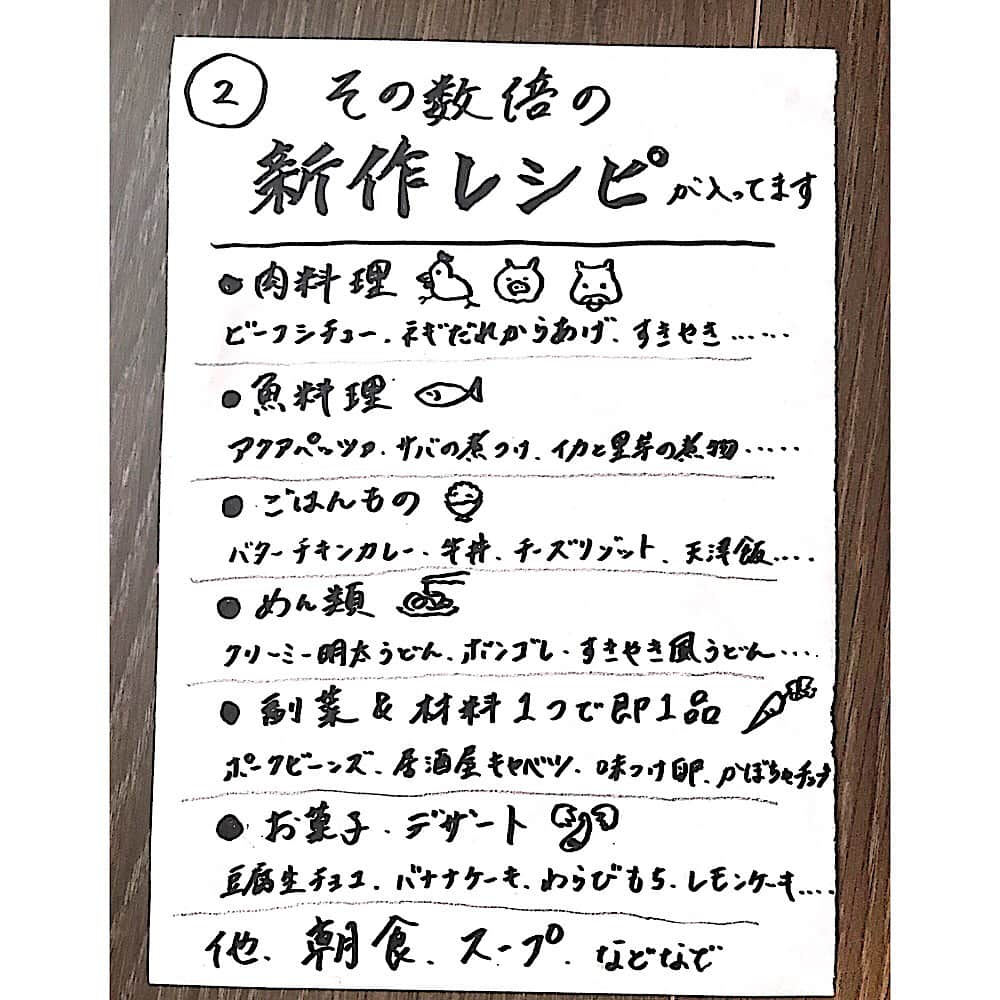 ② その数倍の
新作レシピが入ってます
● 肉料理
ビーフシチュー、ネギだれからあげ、すきやき……
● 魚料理
アクアパッツァ、サバの煮つけ、イカと里芋の煮物……
● ごはんもの
バターチキンカレー、牛丼、チーズリゾット、天津飯……
● めん類
クリーミー明太うどん、ボンゴレ、すきやき風うどん……
● 副菜&材料1つで即1品
ポークビーンズ、居酒屋キャベツ、味つけ卵、かぼちゃチーズ
● お菓子・デザート
豆腐生チョコ、バナナケーキ、わらびもち、レモンケーキ……
他、朝食、スープ、などなど